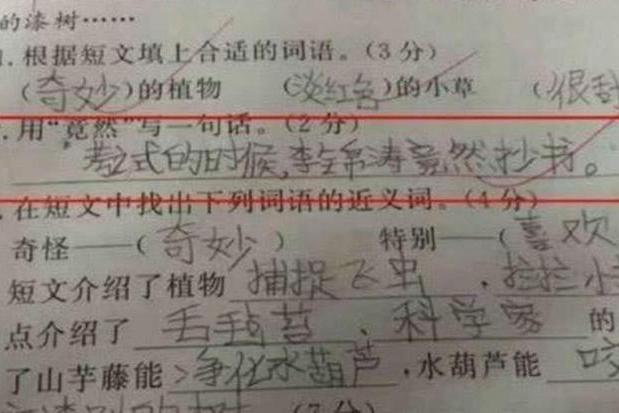 的漆树……
.根据短文填上合适的词语。(3分)
(奇妙)的植物 (淡红色)的小草 (很
.用“竟然”写一句话。(2分)
考试的时候,李全常涛竟然抄书。
.在短文中找出下列词语的近义词。(4分)
奇怪——(奇妙) 特别——(喜欢
短文介绍了植物 捕捉飞虫 、
点介绍了 毛毡苔 、科学家 的
了山芋藤能 净化水葫芦 ,水葫芦能
(2分)